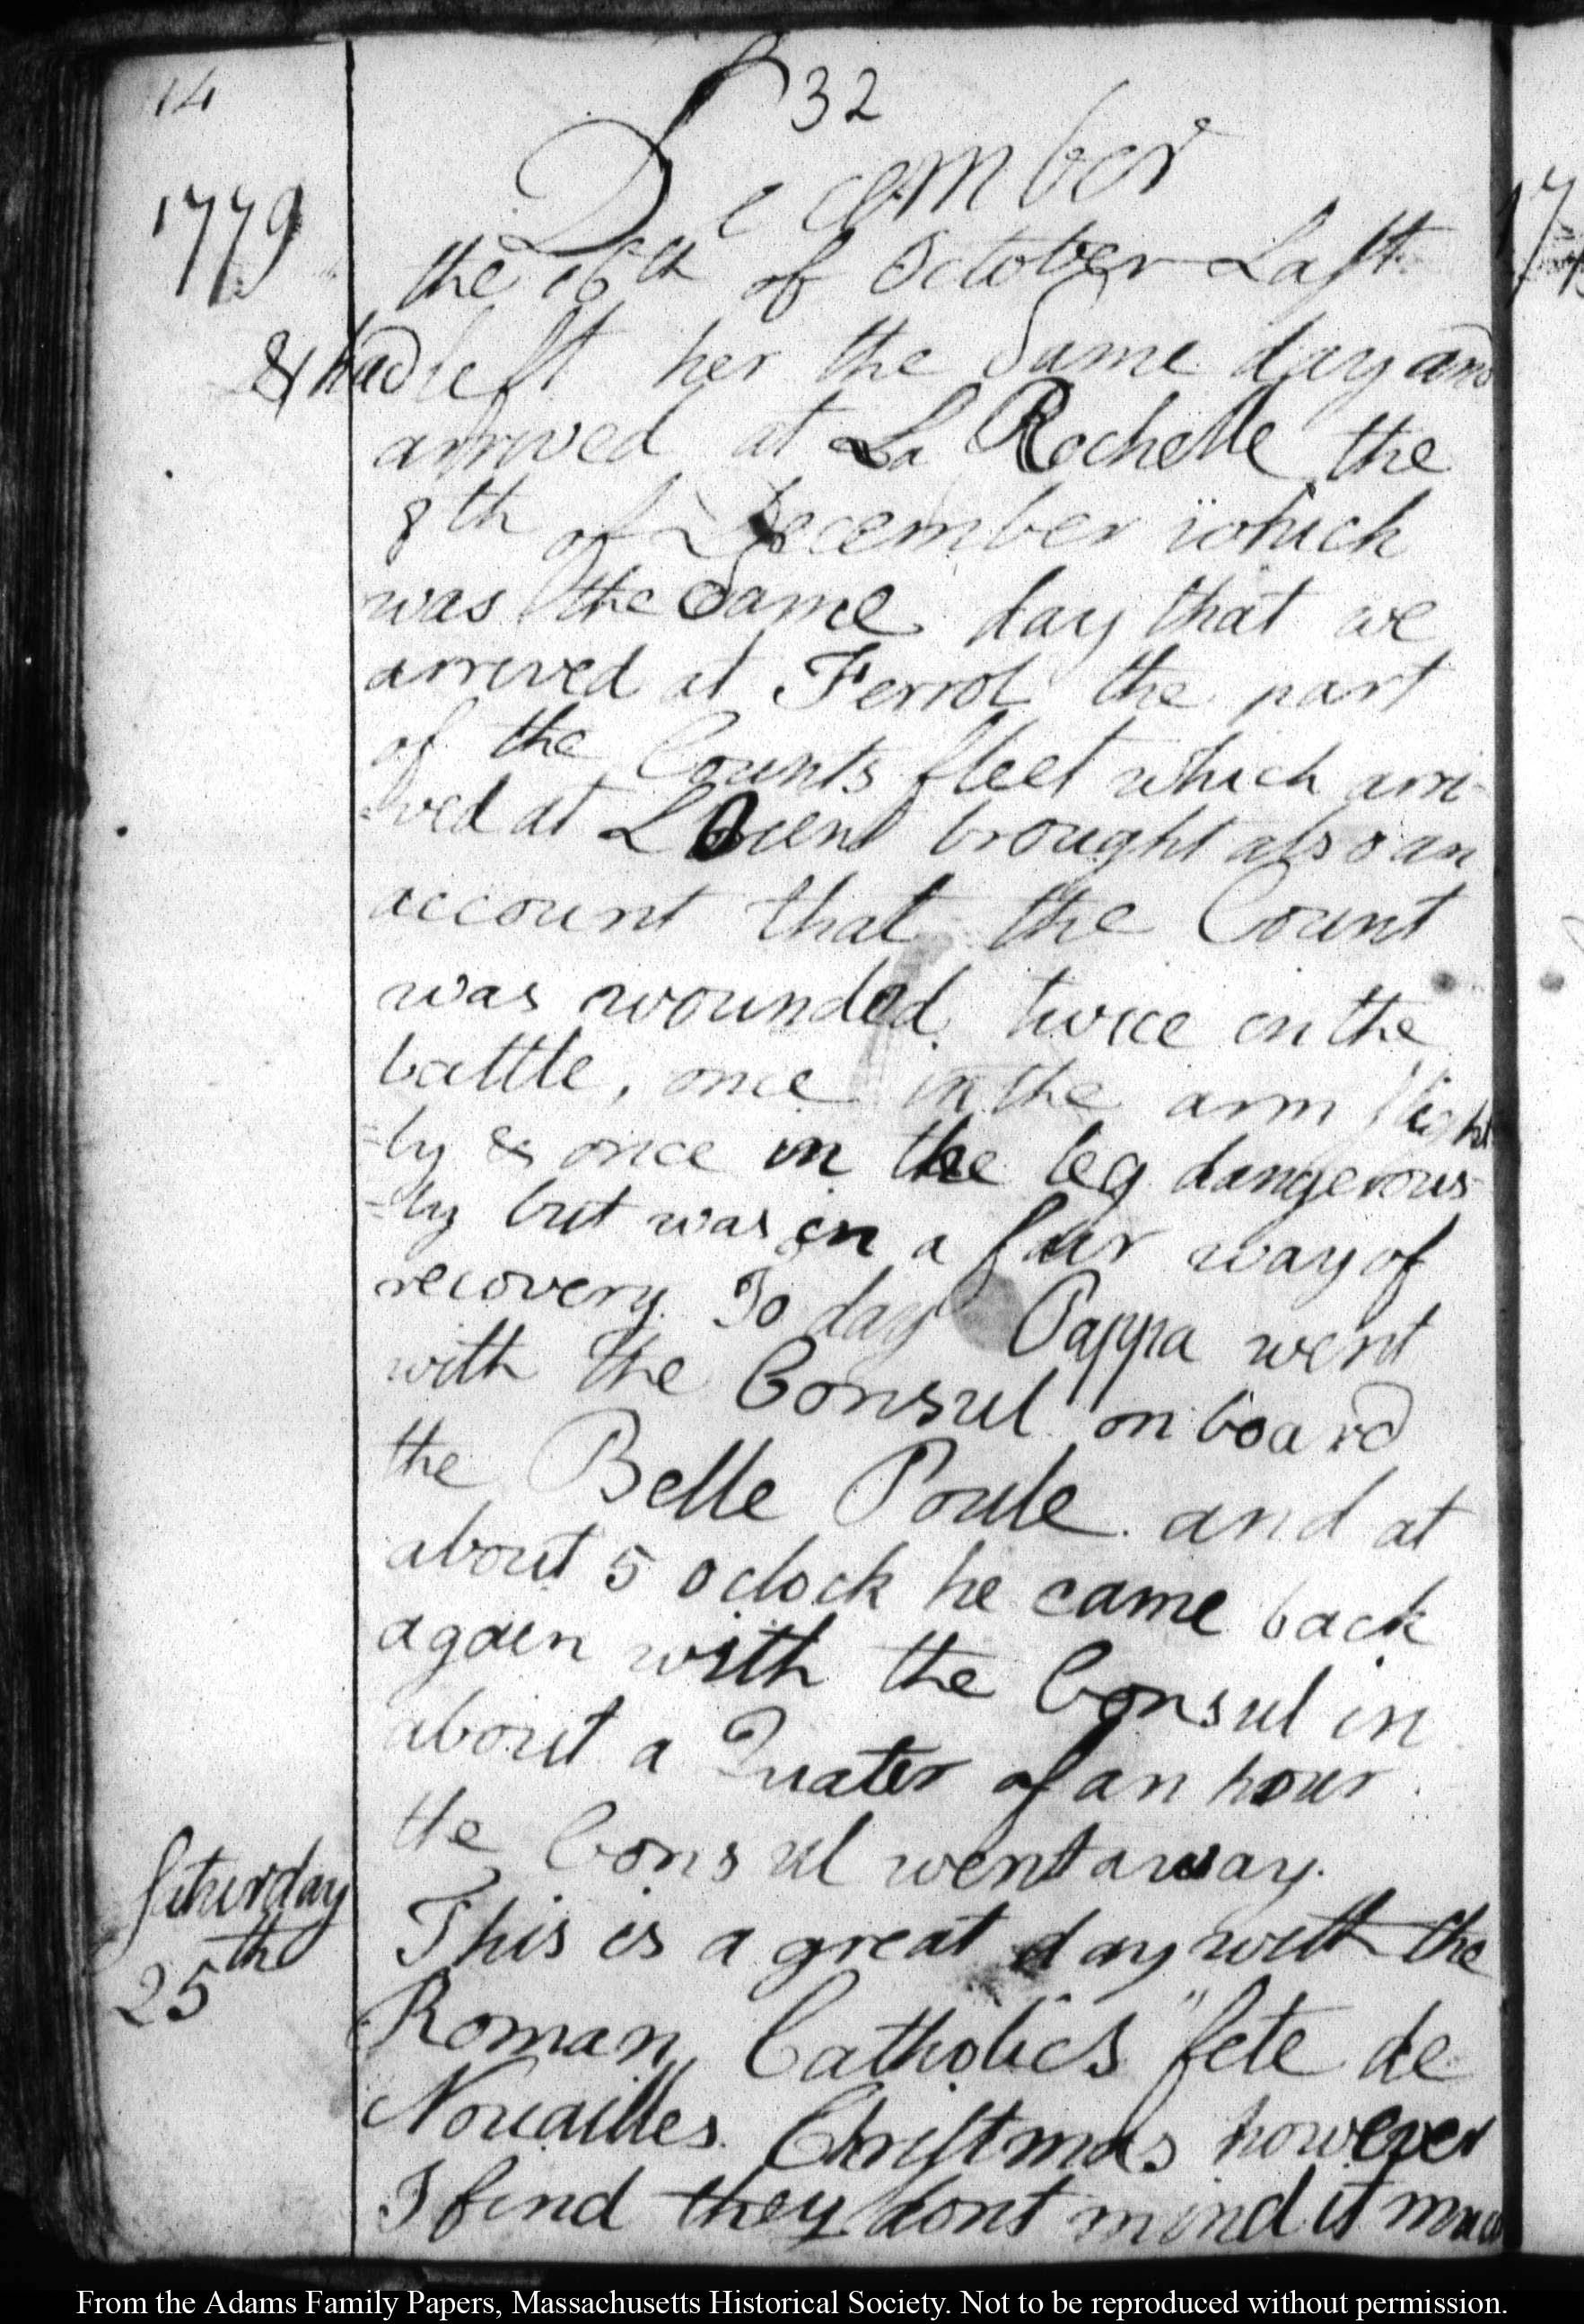 14
32
1779
December
the 16th of October Last
& had left her the Same day and
arrived at La Rochelle the
8th of December which
was the Same day that we
arrived at Ferrol the part
of the Counts fleet which arri-
=ved at L Orient brought also an
account that the Count
was wounded twice in the
battle, once in the arm slight
=ly & once in the leg dangerous
=ly but was in a fair way of
recovery. To day Pappa went
with the Consul on board
the Belle Poule. and at
about 5 oclock he came back
again with the Consul in
about a Quater of an hour
the Consul went away.
Saturday
25th
This is a great day with the
Roman Catholics "fete de
Nouailles" Christmas however
I find they dont mind it
From the Adams Family Papers, Massachusetts Historical Society. Not to be reproduced without permission.